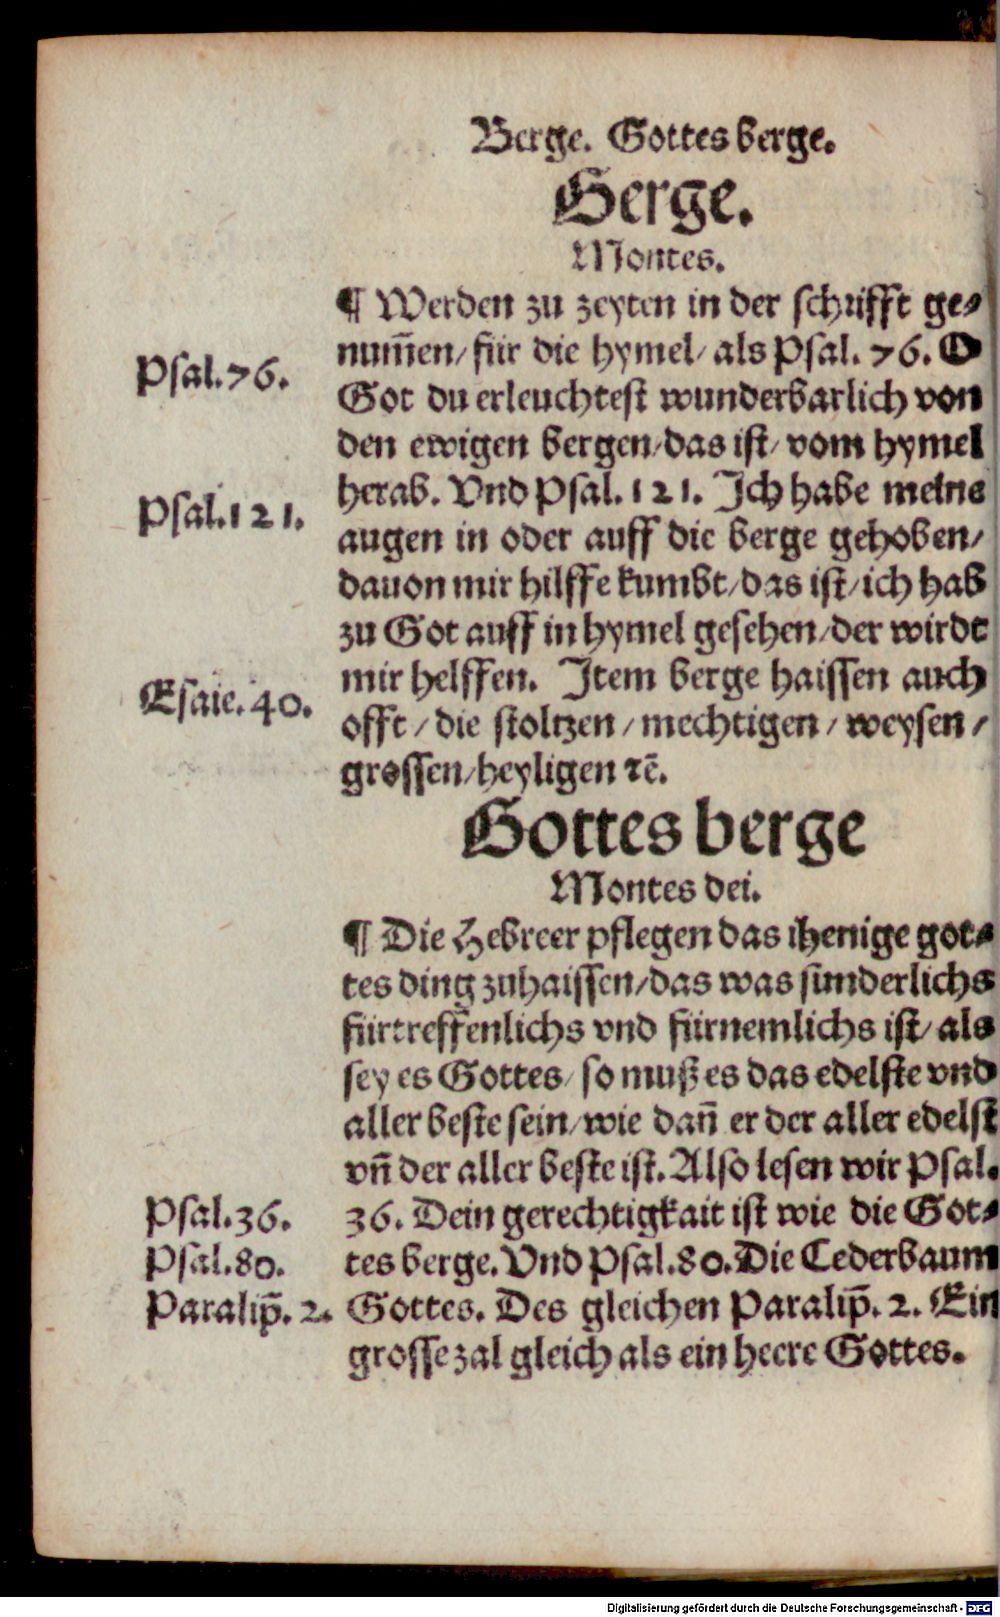 Berge. Gottes berge.
Berge.
Montes.
¶ Werden zu zeyten in der schrifft ge⸗
num̄en/ für die hymel/ als Psal. 76. O
Psal.76.
Got du erleuchtest wunderbarlich von
den ewigen bergen/das ist/ vom hymel
herab. Vnd Psal. 121. Ich habe meine
Psal.121.
augen in oder auff die berge gehoben/
dauon mir hilffe kumbt/das ist/ich hab
zu Got auff in hymel gesehen/der wirdt
mir helffen. Item berge haissen auch
Esaie.40.
offt/ die stoltzen/ mechtigen/ weysen/
grossen/heyligen ⁊c̄.
Gottes berge
Montes dei.
¶ Die Hebreer pflegen das ihenige got⸗
tes ding zuhaissen/das was sunderlichs
fürtreffenlichs vnd fürnemlichs ist/ als
sey es Gottes/ so muß es das edelste vnd
aller beste sein/wie dan̄ er der aller edelst
vn̄ der aller beste ist. Also lesen wir Psal.
Psal.36.
36. Dein gerechtigkait ist wie die Got⸗
Psal.80.
tes berge. Vnd Psal.80. Die Cederbaum
Paralip̄. 2.
Gottes. Des gleichen Paralip̄. 2. Ein
grosse zal gleich als ein heere Gottes.
Digitalisierung gefördert durch die Deutsche Forschungsgemeinschaft - DFG